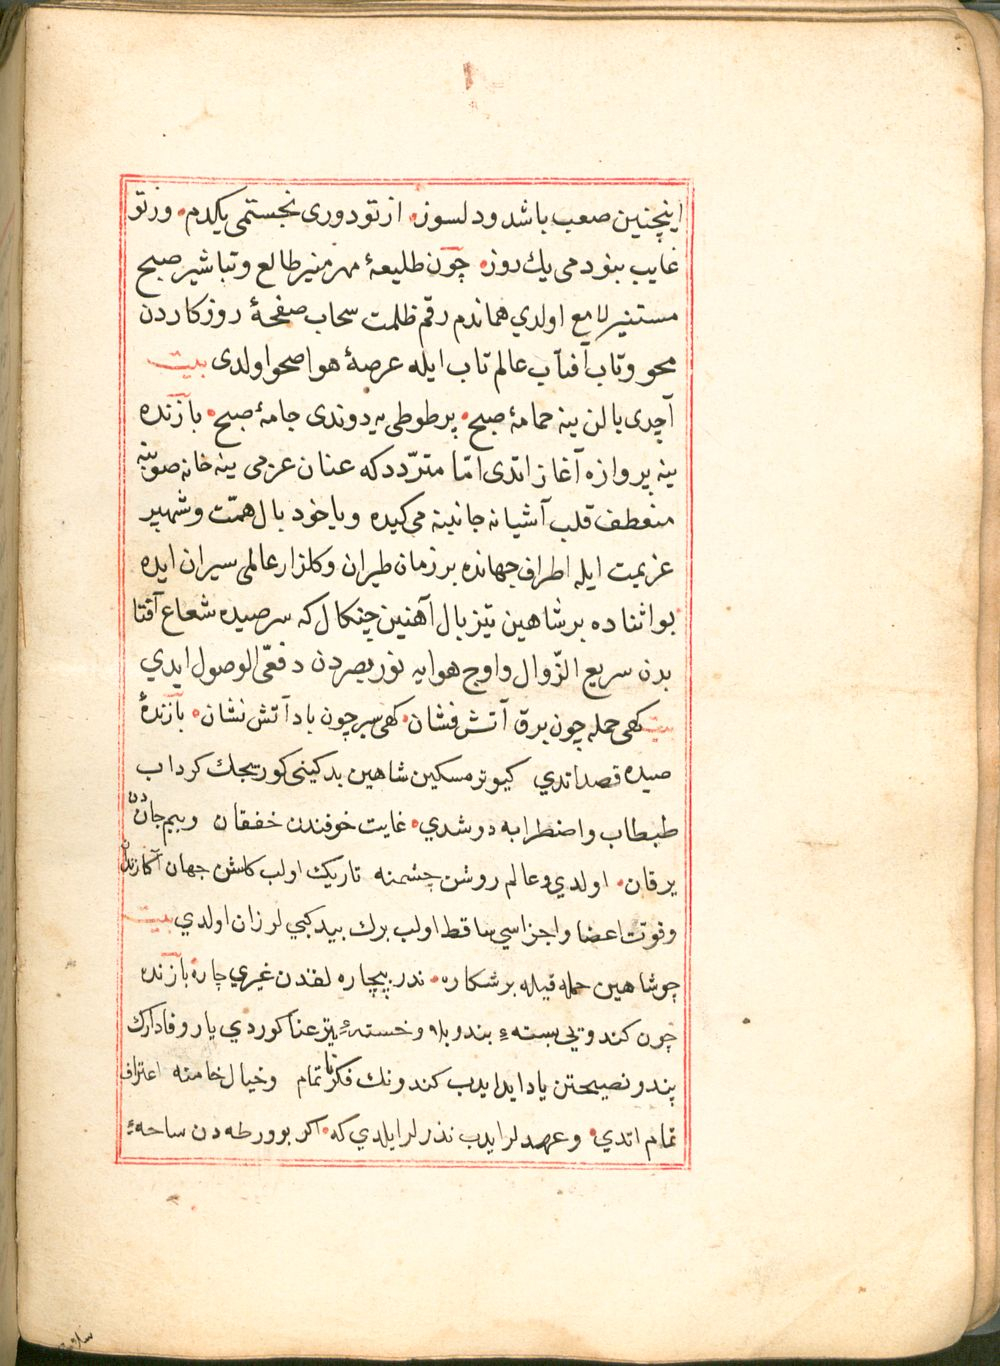 اینچنین صعب باشد ودلسوز. از تو دوری نجستمی یکدم. وز تو
غایب ببودمی یك روز. چون طلیعهٔ مهر منیر طالع وتباشیر صبح
مستنیر لامع اولدي هماندم رقم ظلمت سحاب صفحهٔ روزکاردن
محو وتاب آفتاب عالم تاب ایله عرصهٔ هوا صحو اولدی بیت
آچدی بالن ینه حمامهٔ صبح. پر طوطی یه دوندی جامهٔ صبح. بازنده
ینه پروازه آغاز اتدی امّا متردّد که عنان عزمی ینه خانه صوبینه
منعطف قلب آشیانه جانبنه می کیده ویاخود بال همّت وشهپر
عزیمت ایله اطراف جهانده بر زمان طیران وکلزار عالمی سیران ایده
بو اثناده بر شاهین تیز بال آهنین چنکال که سر صیده شعاع آفتا
بدن سریع الزّوال واوج هوایه نور بصردن دفعّی الوصول ایدي
بیت کهی حمله چون برق آتش فشان. کهی سیر چون باد آتش نشان. بازندهٔ
صیده قصد اتدي کبوتر مسکین شاهین بد کینی کوریجك کرداب
طبطاب واضطرابه دوشدي. غایت خوفندن خفقان وبیم جاندن
یرقان. اولدي وعالم روشن چشمنه تاریك اولب کلشن جهان آکا زندان
وقوت اعضا واجزاسي ساقط اولب برك بید کبي لرزان اولدي بیت
چو شاهین حمله قیله بر شکاره. ندر بیچاره لغندن غیري چاره بازنده
چون کندوتي بستهٔ بند وبلا وخستهٔ تیر عنا کوردي یار وفادارك
پند ونصیحتن یاد ایدایدب کندونك فکر ناتمام وخیال خامنه اعتراف
تمام اتدي. وعهدلر ایدب نذرلر ایلدي که. اکر بو ورطه دن ساحهٔ